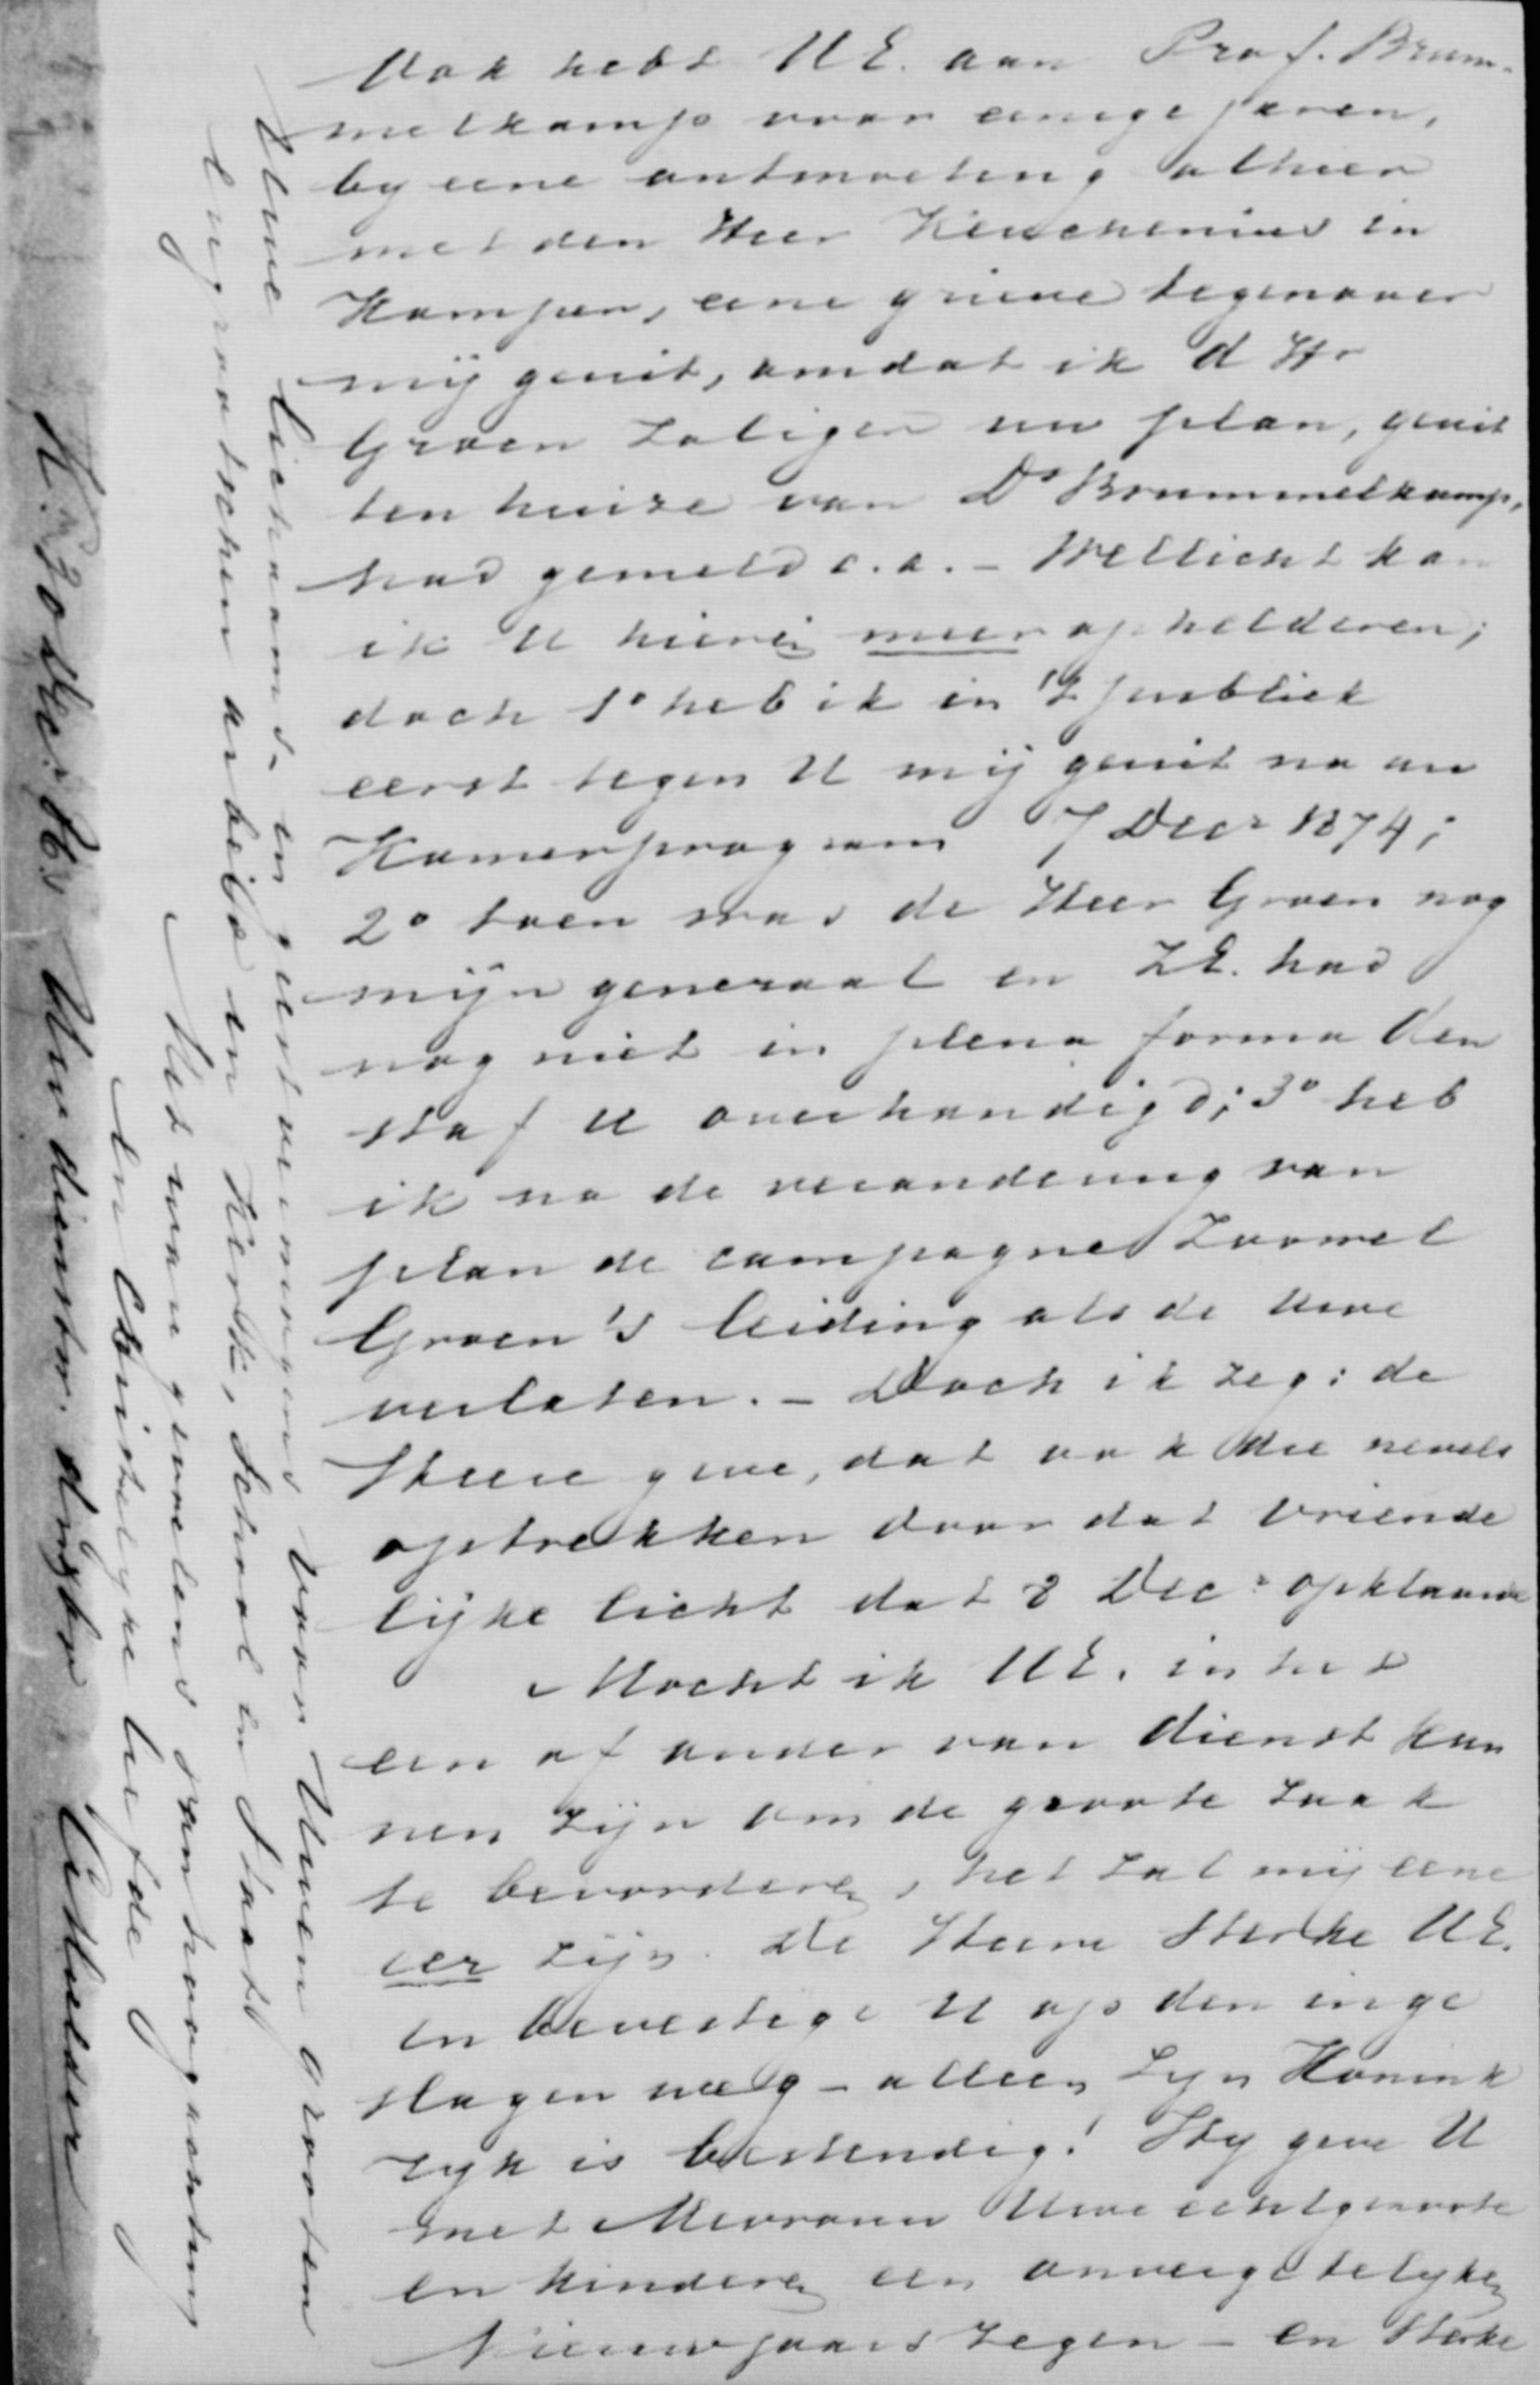 Ook hebt UE. aan Prof. Brum-
melkamp voor eenige jaren,
by eene ontmoeting alhier
met den Heer Keuchenius in
Kampen, eene grieve tegenover
mij geuit, omdat ik d Hr
Groen zaliger uw plan, geuit
ten huize van Ds Brummelkamp,
had gemeld c.a. - Wellicht kan
ik U hierin meer ophelderen;
doch 1o heb ik in 't publiek
eerst tegen U mij geuit na uw
Kamerprogram 7 Decr 1874;
2o toen was de Heer Groen nog
mijn generaal en ZE. had
nog niet in plena forma den
staf U overhandigd; 3o heb
ik na de verandering van
plan de campagne zoowel
Groen's leiding als de Uwe
verlaten. - Doch ik zeg: de
Heere geve, dat ook die nevels
optrekken door dat vriende
lijke licht dat 3 Decr opklaarde
Mocht ik UE. in het
een of ander van dienst kun
nen zijn om de groote zaak
te bevorderen, het zal mij eene
eer zijn. De Heere sterke UE.
en bevestige U op den inge
slagen weg - alleen Zyn Konink
ryk is bestendig! Hy geve U
met Mevrouw Uwe echtgenoote
en kinderen een onvergetelyken
Nieuwjaars zegen - en sterke
Uwe lichaams- en geestvermogens voor Uwen grooten
en arbeid in Kerk, School en Staat
Met ware gevoelens van hoogachting
en Christelyke liefde
Uw dienstw. dr br